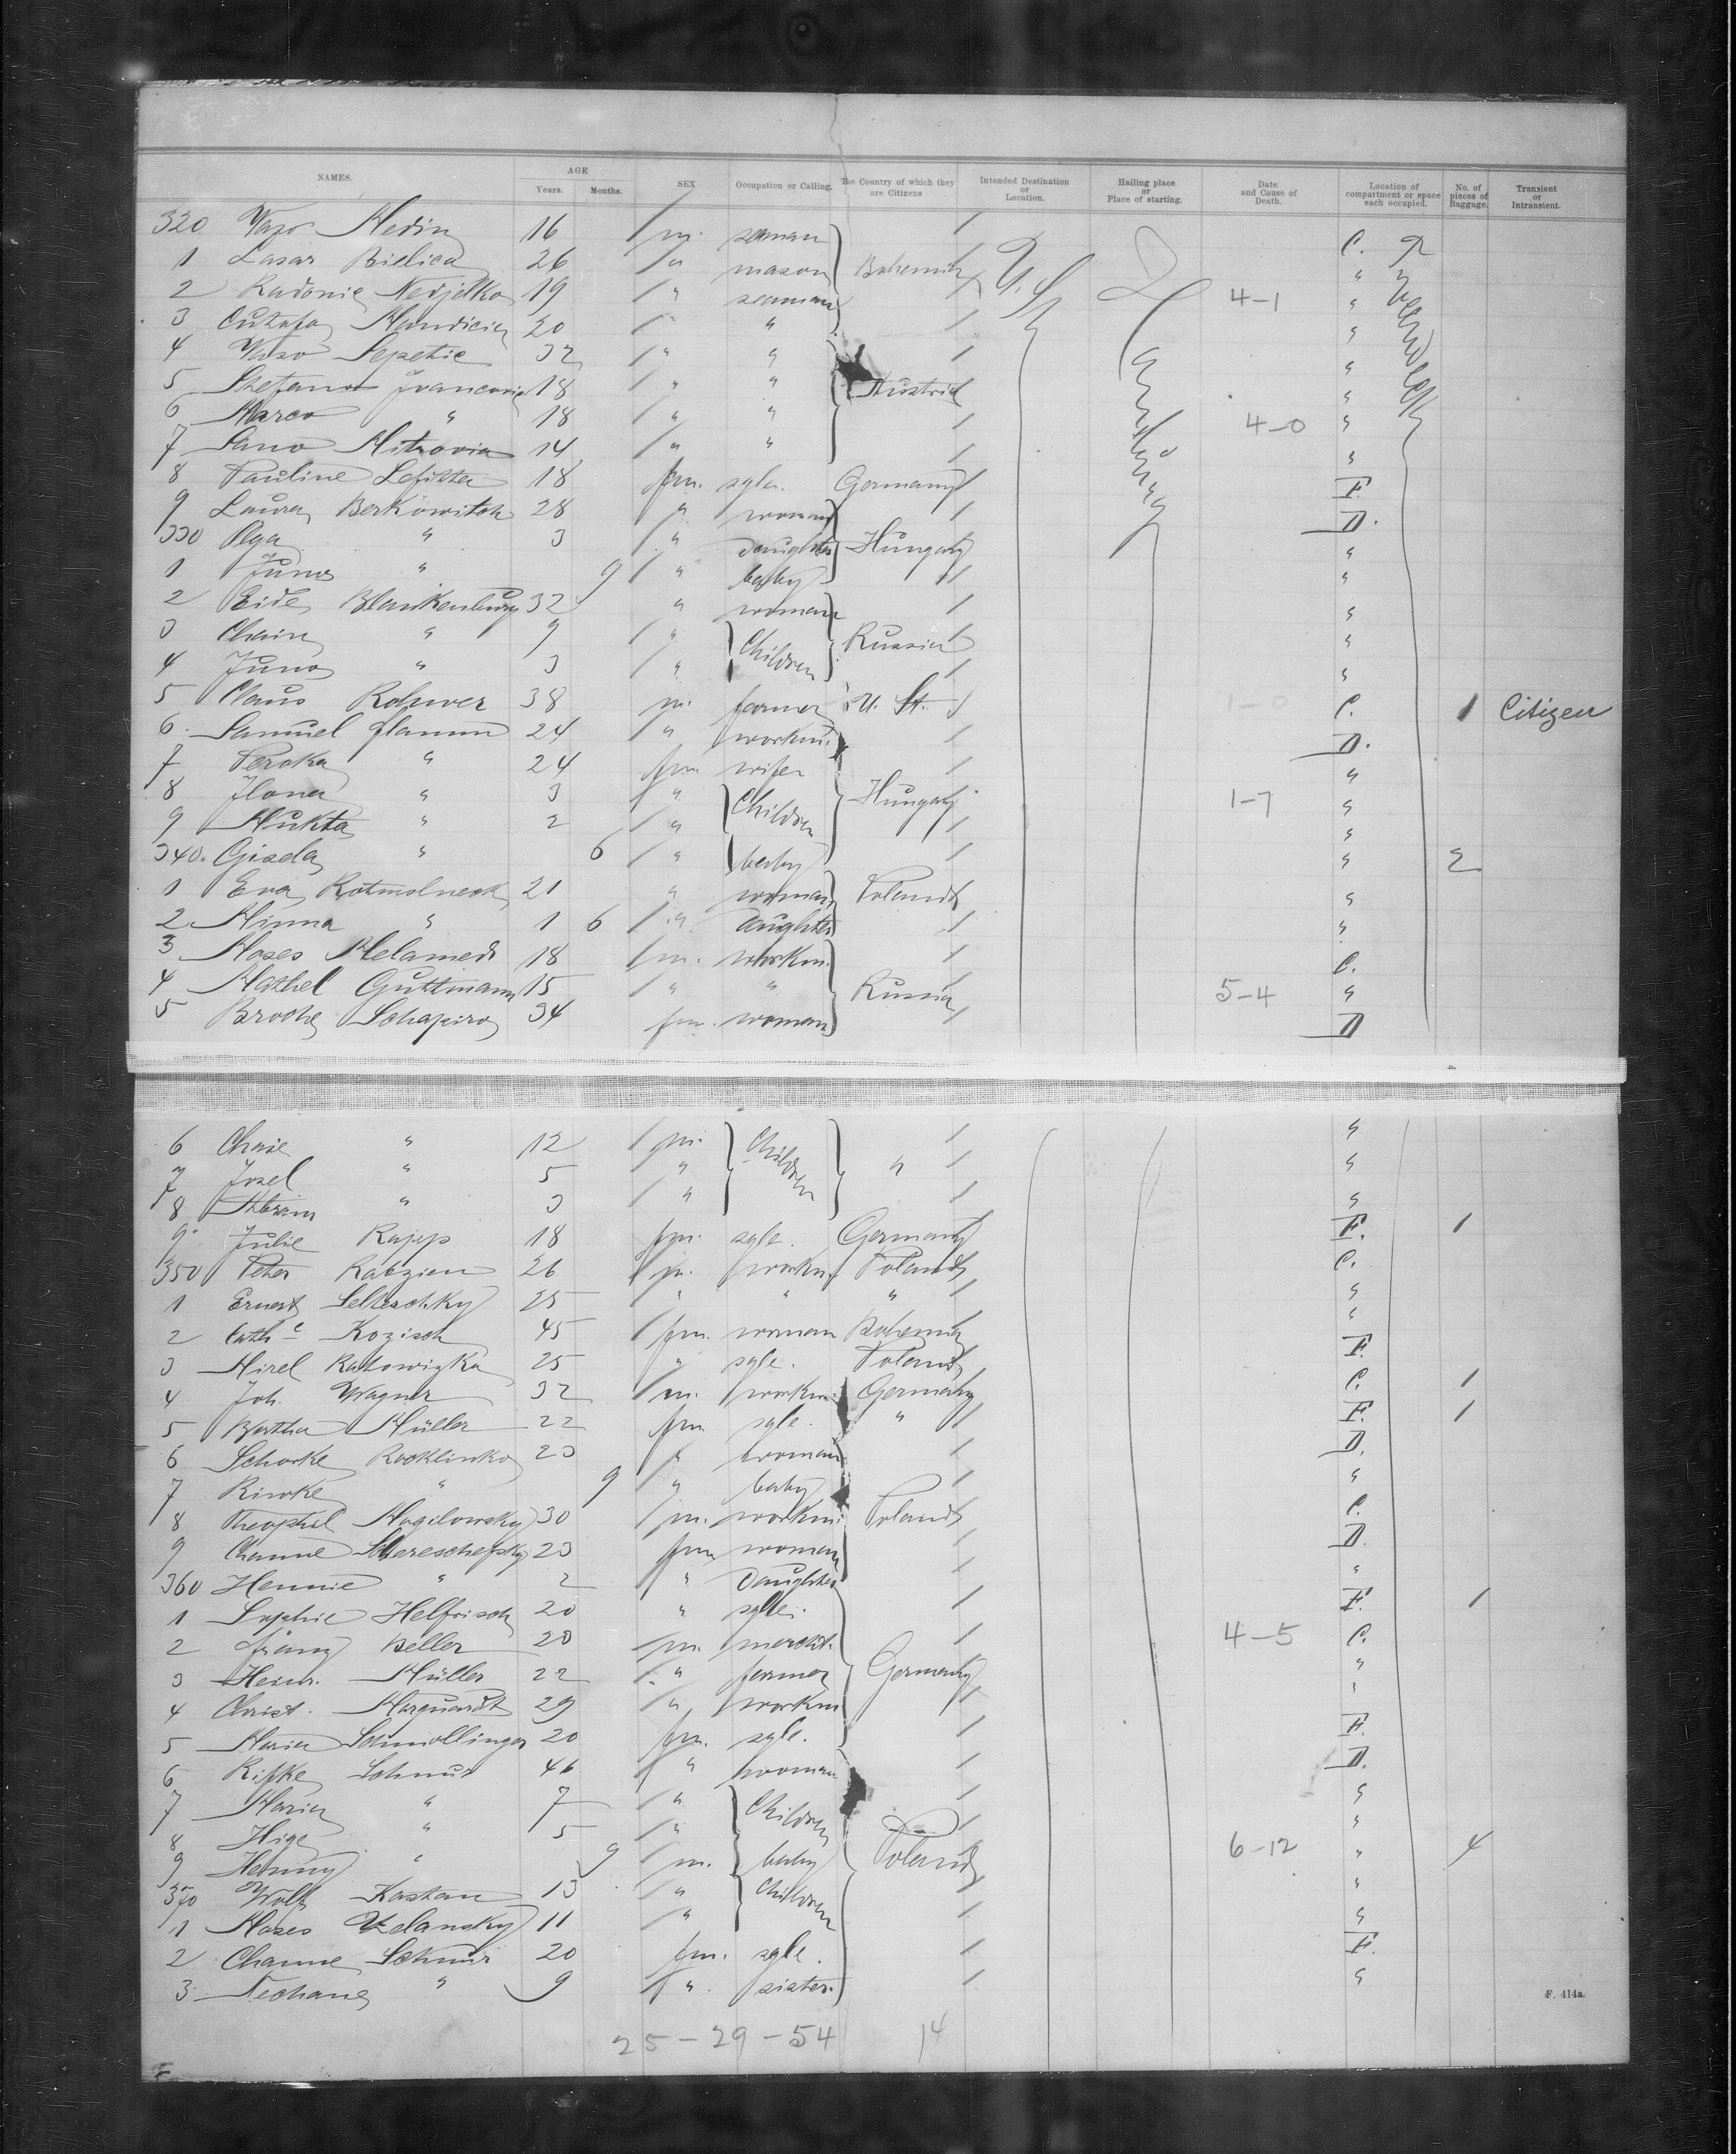 NAMES. AGE Years. Months. SEX Occupation or Calling. The Country of which they are Citizens Intended Destination or Location. Hailing place or Place of starting. Date and Cause of Death. Location of compartment or space each occupied. No. of pieces of Baggage. Transient or Intransient.
320 Vaso Medin 16 m. seaman C.
1 Lazar Bielica 26 " mason Bohemia U. St. "
2 Radonie Nedjelko 19 " seaman 4-1 "
3 20 " " "
4 Vaso Sepetic 32 " " "
5 Stefano Ivancovic 18 " " Austria "
6 Marco " 18 " " 4-0 "
7 Mitrovia 14 " " "
8 Pauline 18 fm. sgle. Germany F.
9 Laura Berkowitch 28 " woman D.
330 Olga " 3 " daughter Hungary "
1 " 9 " baby "
2 Eide Blankenburg 32 " woman "
3 Chain " 9 " Children Russia "
4 " 3 " "
5 Claus Rohwer 38 m. farmer U. St. 1-0 C. 1 Citizen
6 Samuel 24 " workm. D.
7 " 24 fm wife "
8 Ilona " 3 " Children Hungary 1-7 "
9 " 2 " "
340. Gisela " 6 " baby " 2
1 Eva 21 " woman Poland "
2 Minna " 1 6 " daughter "
3 Moses Melamed 18 m. workm. C.
4 Guttmann 15 " " Russia 5-4 "
5 Broche Schapiro 34 fm. woman D
6 " 12 m. Children "
7 Josel " 5 " " "
8 Abram " 3 " "
9 Julie Rapp 18 fm. sgle. Germany F. 1
350 Peter 26 m. workm. Poland C.
1 Ernest 25 " " " "
2 Cathe Kozisch 45 fm. woman Bohemia "
3 Mirel 25 " sgle. Poland F.
4 Joh. Wagner 32 m. workm. Germany C. 1
5 Bertha Müller 22 fm. sgle. " F. 1
6 23 " woman D.
7 " 9 " baby "
8 Theophil Mogilowsky 30 m. workm. Poland C.
9 Channe 23 fm woman D.
360 Hennie " 2 " Daughter "
1 Sophie Helfrisch 20 " sgle. F. 1
2 Franz 20 m. mercht. 4-5 C.
3 Heinr. Müller 22 " farmer Germany "
4 Christ. Marquardt 29 " workm "
5 Maria Schmollinger 20 fm. sgle. F.
6 Rifke Schmir 46 " woman D.
7 Maria " 7 " Children "
8 " 5 " "
9 " 9 m. baby Poland 6-12 " 4
370 Wolf Kastan 13 " Children "
1 Moses 11 " "
2 Channe Schmir 20 fm. sgle. F.
3 Nechane " 9 " sister. "
F. 414a.
25-29-54 14